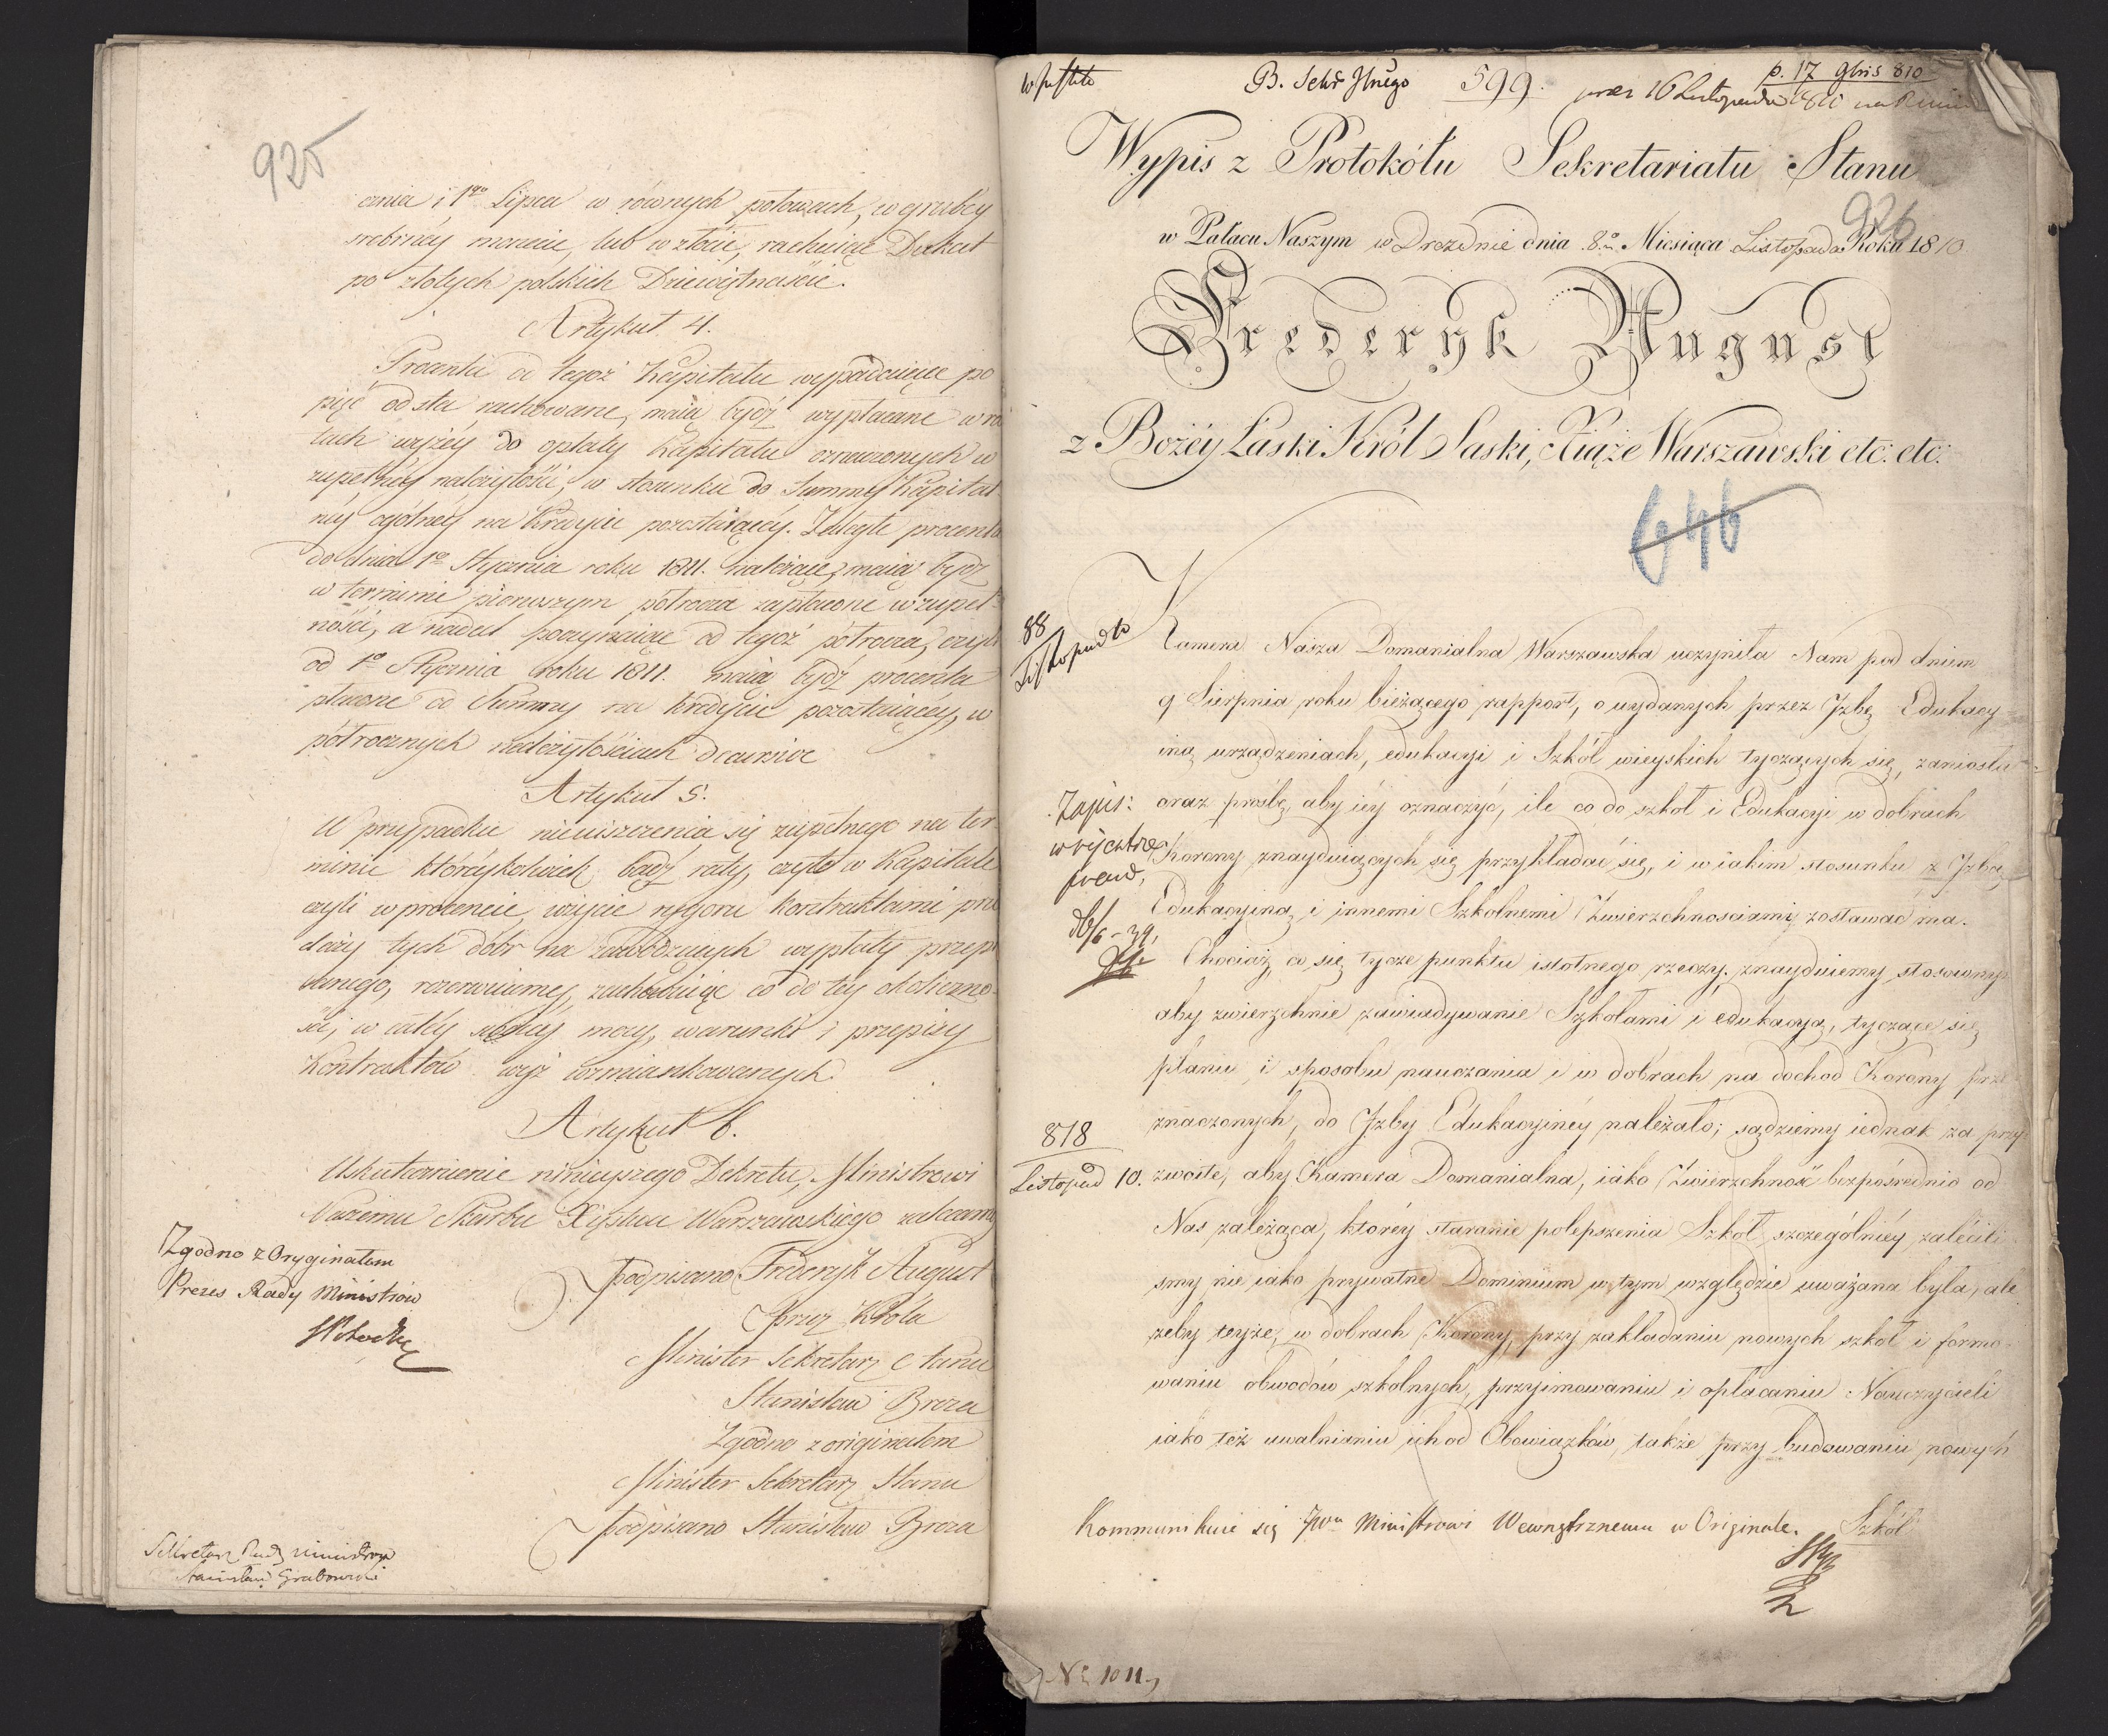 925
cznia i 1go Lipca w równych połowach, w grubéy
srebrnéy monecie, lub w złocie, rachuiąc Dukat
po złotych polskich Dziewiętnaście.
Artykuł 4.
Procenta od tegoż Kapitału wypadaiące po
pięć od sta rachowane, maią bydź wypłacane w ra
tach wyżéy do opłaty Kapitału oznaczonych w
zupełnéy należytości, w stosunku do Summy Kapitał
néy ogólnéy na Kredycie pozostaiącéy. Zaległe procenta
do dnia 1o Stycznia roku 1811. należące, maią bydź
w terminie pierwszym półrocza zapłacone w zupeł-
ności, a nadal poczynaiąc od tegoż półrocza, czyli
od 1o Stycznia roku 1811. maią bydź procenta
płacone od Summy na Kredycie pozostaiącéy, w
półrocznych należytościach decursive
Artykuł 5.
W przypadku nieuiszczenia się zupełnego na ter-
minie któréykolwiek bądź raty, czyto w Kapitale
czyli w procencie, użycie rygoru kontraktami prze
daży tych dóbr na zawodzących wypłaty przepi
sanego, rezerwuiemy, zachowuiąc co do téy okoliczno-
ści, w całéy swoiéy mocy, warunki i przepisy
Kontraktów wyż wzmiankowanych.
Artykuł 6.
Uskutecznienie ninieyszego Dekretu, Ministrowi
Naszemu Skarbu Xięstwa Warszawskiego zalecamy
Zgodno z Oryginałem
Prezes Rady Ministrów
podpisano Fryderyk August
przez Króla
Minister Sekretarz Stanu
Stanisław Breza
Zgodno z originałem
Minister Sekretarz Stanu
podpisano Stanisław Breza
Sekretarz Rady Ministrów
Stanisław Grabowski
B. Sekr 599. p. 17 9bris 810
prez 16 Listopada
Wypis z Protokółu Sekretariatu Stanu
926
w Pałacu Naszym w Dreźnie dnia 8o Miesiąca Listopada Roku 1810
Frederyk August
z Bożéy Łaski Król Saski, Xiąże Warszawski etc: etc:
646
88
Listopadto
Kamera Nasza Domanialna Warszawska uczyniła Nam pod dniem
9 Sierpnia roku bieżącego rapport, o wydanych przez Jzbę Edukacy-
iną urządzeniach, edukacyi i Szkół wieyskich tyczących się, zaniosła
oraz prośbę, aby iéy oznaczyć, ile co do szkół i Edukacyi w dobrach
Korony znayduiących się przykładać się, i w iakim stosunku z Jzbą
Edukacyiną i innemi Szkolnemi Zwierzchnościami zostawać ma.
Chociaż co się tycze punktu istotnego rzeczy, znayduiemy stosownym
aby zwierzchnie zawiadywanie Szkołami i edukacyą, tyczące się
planu i sposobu nauczania i w dobrach na dochod Korony prze
znaczonych, do Jzby Edukacyinéy należało; sądziemy iednak za przy
878
Listopad 10.
zwoite, aby Kamera Domanialna, iako Zwierzchność bezpośrednio od
Nas zależąca, któréy staranie polepszenia Szkół szczególniéy zalécili
smy nie iako prywatne Dominium w tym względzie uważana była, ale
żeby teyże, w dobrach Korony, przy zakładaniu nowych szkół i formo-
waniu obwodów szkolnych, przyimowaniu i opłacaniu Nauczycieli
iako też uwalnianiu ich od Obowiązków, także przy budowaniu nowych
Szkół
Kommunikuie się JWu Ministrowi Wewnętrznemu w Originale.
No 1011